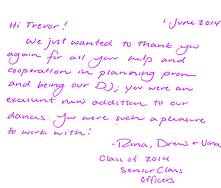 Hi Trevor! 1 June 2014
We just wanted to thank you
again for all your help and
cooperation in planning prom
and being our DJ; you were an
excellent new addition to our
dances. You were such a pleasure
to work with!
- Rina, Drew & Vera
Class of 2014
Senior Class
Officers